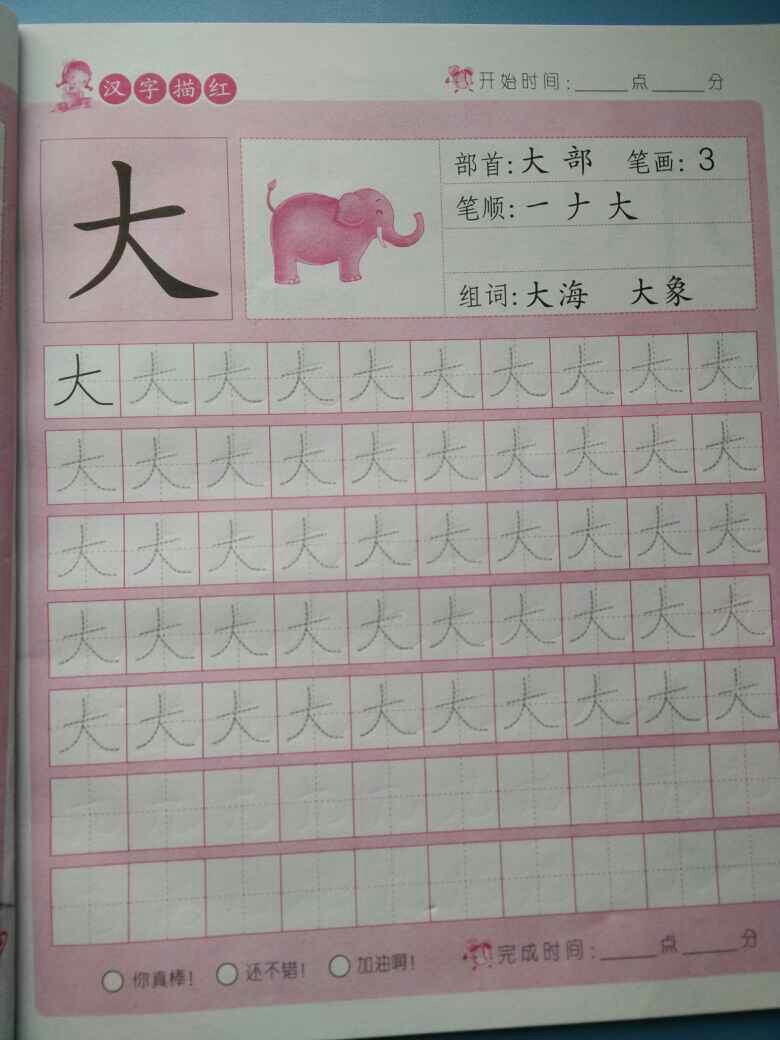 汉字描红
开始时间:____点____分
大
部首:大部 笔画:3
笔顺:一ナ大
组词:大海 大象
大大大大大大大大大大
大大大大大大大大大大
大大大大大大大大大大
大大大大大大大大大大
大大大大大大大大大大
你真棒! 还不错! 加油啊!
完成时间:____点____分